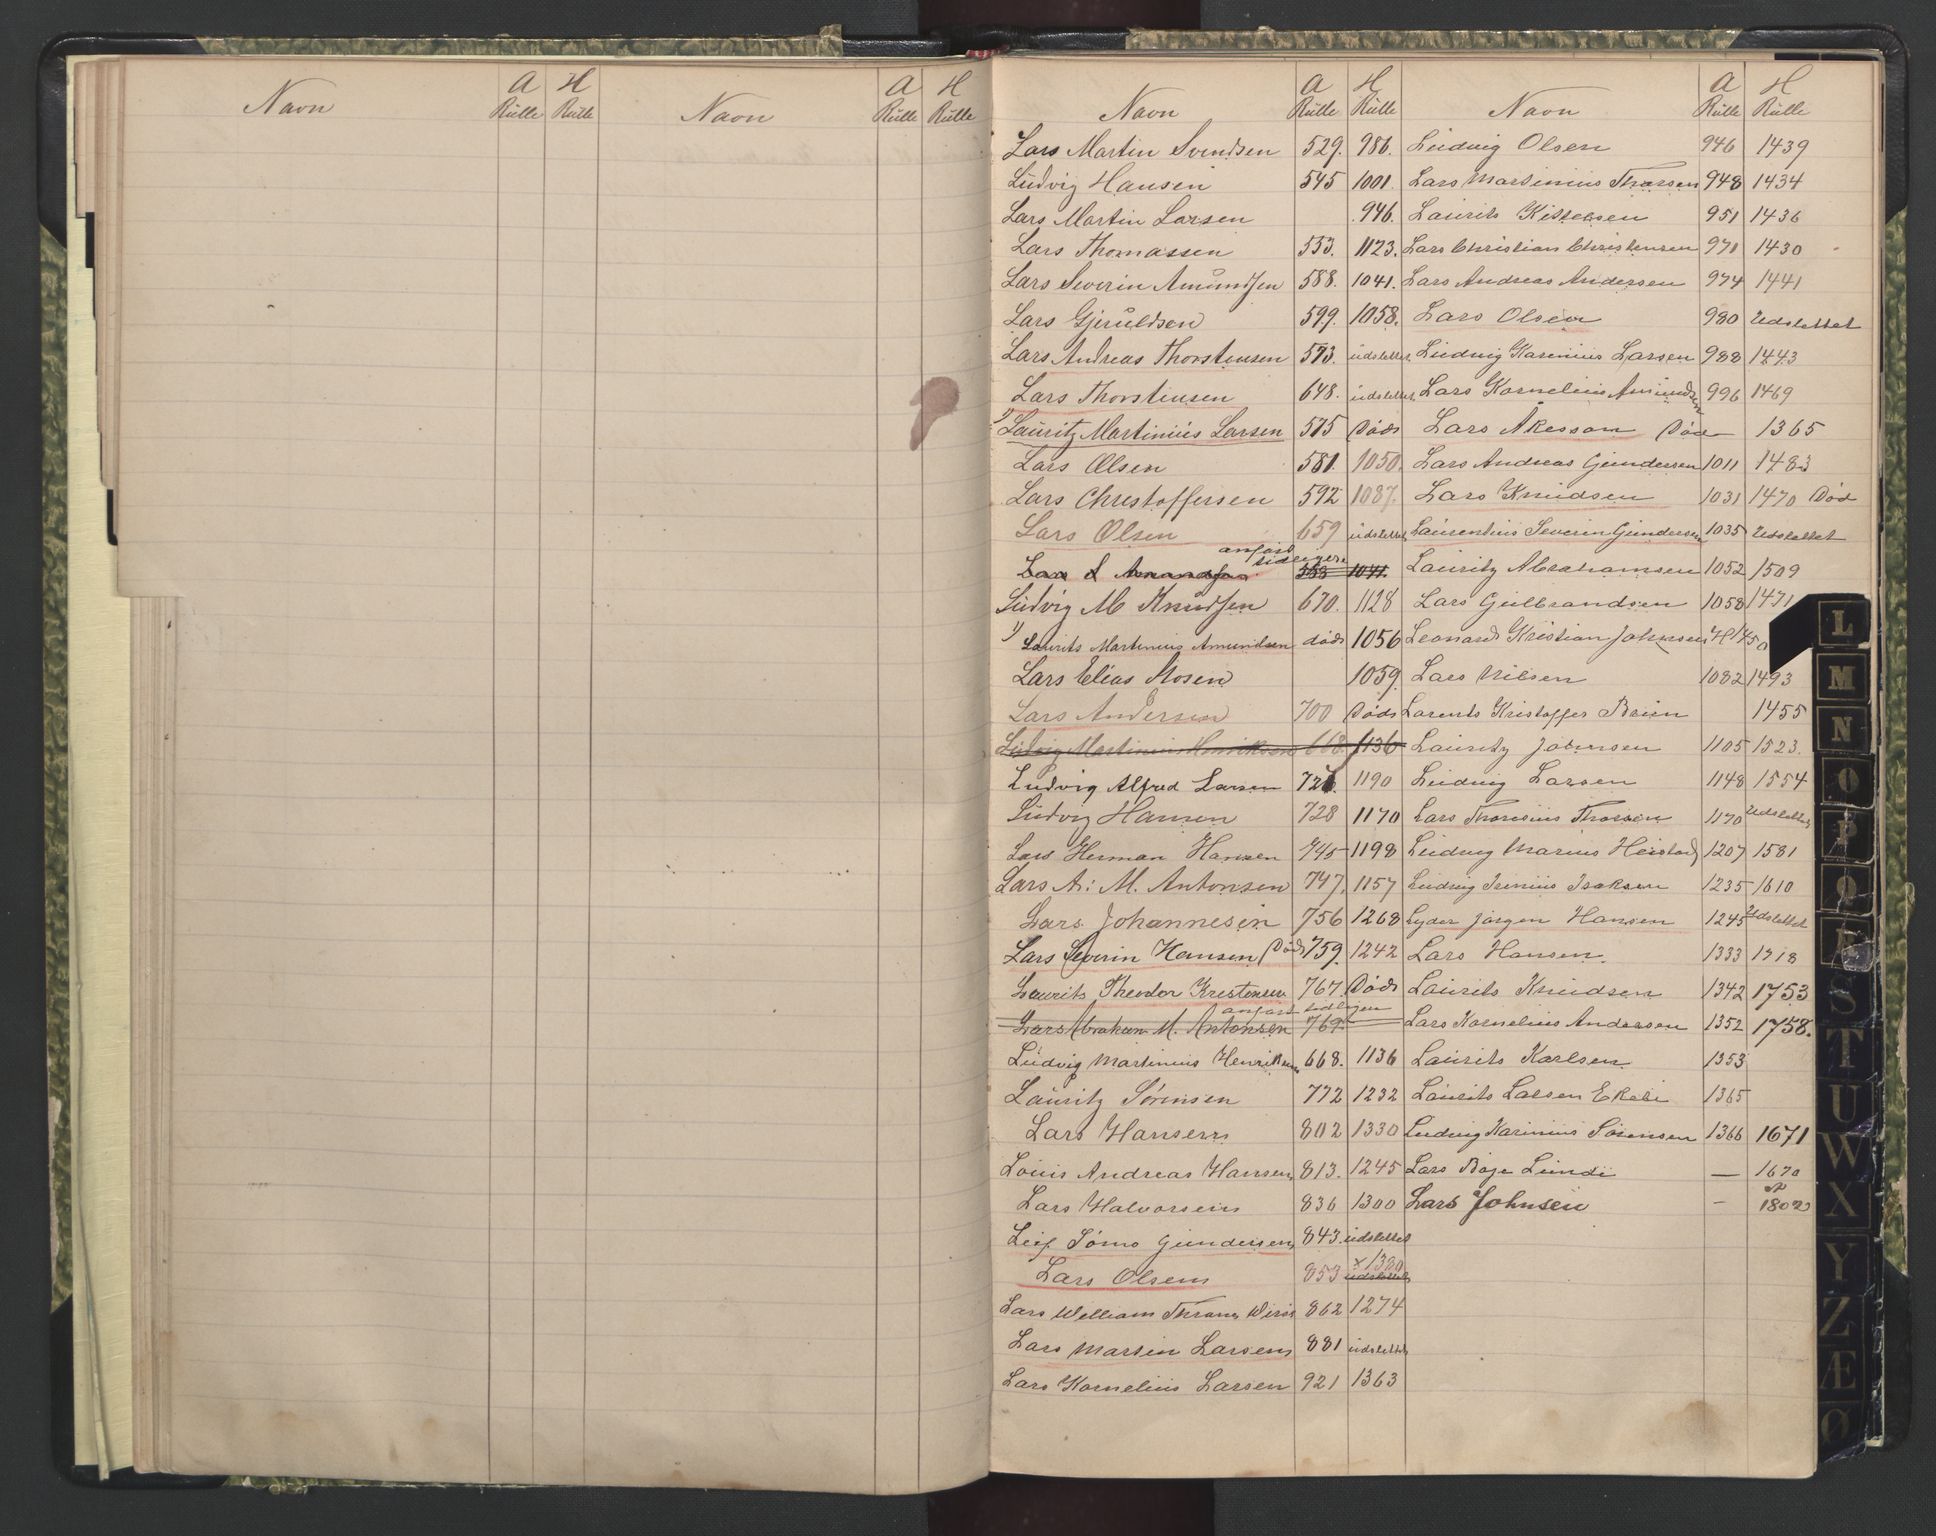 Navn A Rulle H Rulle Navn A Rulle H Rulle
Navn A Rulle H Rulle Navn A Rulle H Rulle
Lars Martin Svendsen 529. 986.
Ludvig Hansen 545 1001.
Lars Martin Larsen 946.
Lars Thomassen 553. 1123.
Lars Severin Amundsen 588. 1041.
Lars Gjeruldsen 599. 1058.
Lars Andreas Thorstensen 573. udslettet
Lars Thorstensen 648. udslettet
1) Lauritz Martinius Larsen 575 Død
Lars Olsen 581. 1050.
Lars Christoffersen 592 1087.
Lars Olsen 659 udslettet
anført tidligere
Lars S Amundsen 588 1041.
Ludvig M Knudsen 670. 1128
1) Laurits Martinius Amundsen død 1056
Lars Elias Mosen 1059.
Lars Andersen 700 Død
Ludvig Martinius Henriksen 668. 1136
Ludvig Alfred Larsen 726. 1190
Ludvig Hansen 728 1170
Lars Herman Hansen 745 1198
Lars A: M. Antonsen 747. 1157
Lars Johannesen 756 1268
Lars Severin Hansen (Død) 759. 1242
Laurits Theodor Kristensen 767. Død
anført tidligere
Lars Abraham M. Antonsen 769.
Ludvig Martinius Henriksen 668. 1136
Lauritz Sørensen 772 1232
Lars Hansen 802 1330
Louis Andreas Hansen 813. 1245
Lars Halvorsen 836 1300
Leif Tømo Gundersen 843. udslettet
Lars Olsen 853 x 1300 udslettet
Lars William Thrane 862 1274
Lars Martin Larsen 881 udslettet
Lars Kornelius Larsen 921 1363
Ludvig Olsen 946 1439
Lars Martinius Thorsen 948 1434
Laurits Kittelsen 951 1436
Lars Christian Christensen 970 1430
Lars Andreas Andersen 974 1441
Lars Olsen 980 Udslettet
Ludvig Karinius Larsen 988 1443
Lars Kornelius Amundsen 996 1469
Lars Åkesson Død 1365
Lars Andreas Gundersen 1011 1483
Lars Knudsen 1031 1470 Død
Laurentius Severin Gundersen 1035 Udslettet
Lauritz Abrahamsen 1052 1509
Lars Gulbrandsen 1058 1471
Leonard Kristian Johnsen H 1450
Lars Nilsen 1082 1493
Larents Kristoffer Brun 1455
Lauritz Johnsen 1105 1523.
Ludvig Larsen 1148 1554
Lars Thorinius Thorsen 1170 Udslettet
Ludvig Marius Heistad 1207 1581
Ludvig Irinius Isaksen 1235 1610
Lyder Jørgen Hansen 1245 Udslettet
Lars Hansen 1333 1718
Laurits Knudsen 1342 1753
Lars Kornelius Andersen 1352 1758.
Laurits Karlsen 1353
Laurits Larsen Ekebi 1365
Ludvig Karinius Sørensen 1366 1671
Lars Boje Lunde — 1670
Lars Johnsen – 1802
L
M
N
O
P
Q
R
S
T
U
W
X
Y
Z
Æ
Ø